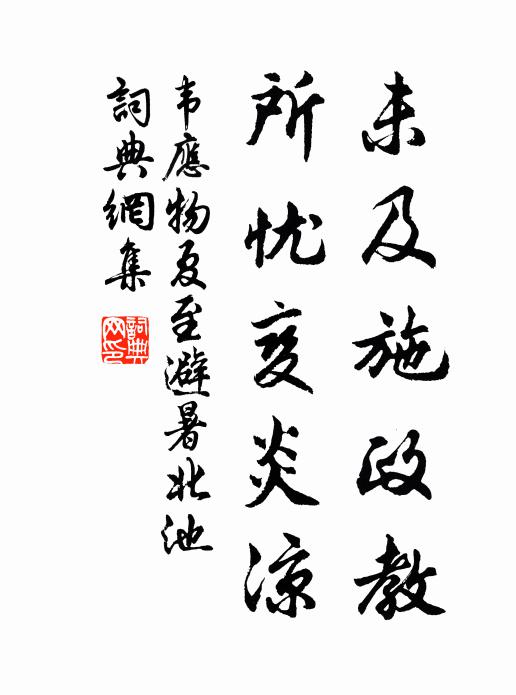 未及施政教
所忧变炎凉
韦應物夏至避暑北池
詞典網集
詞典网印